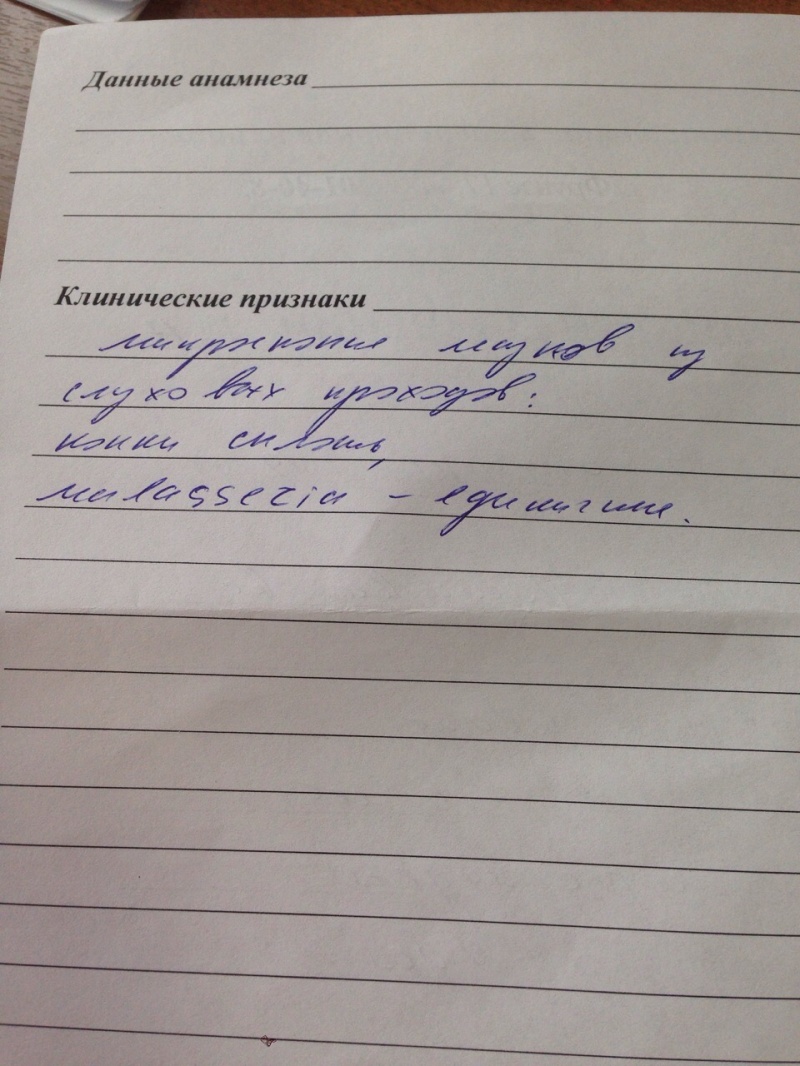 Данные анамнеза
Клинические признаки
микроскопия мазков из
слуховых проходов:
кокки сплошь,
malassezia - единичные.